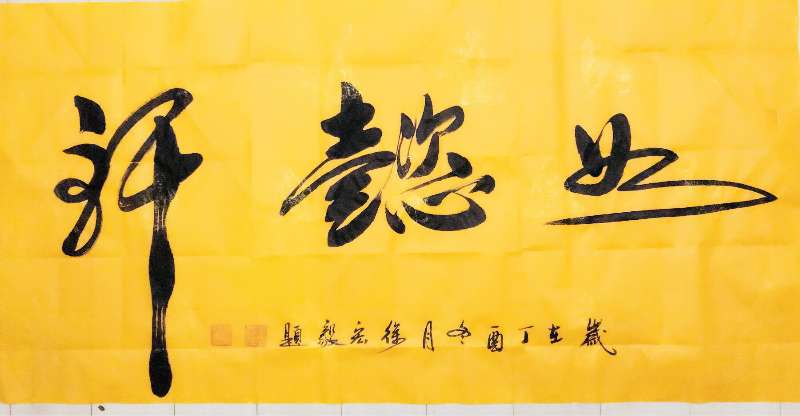 如懿
歲在丁酉冬月徐宏毅題